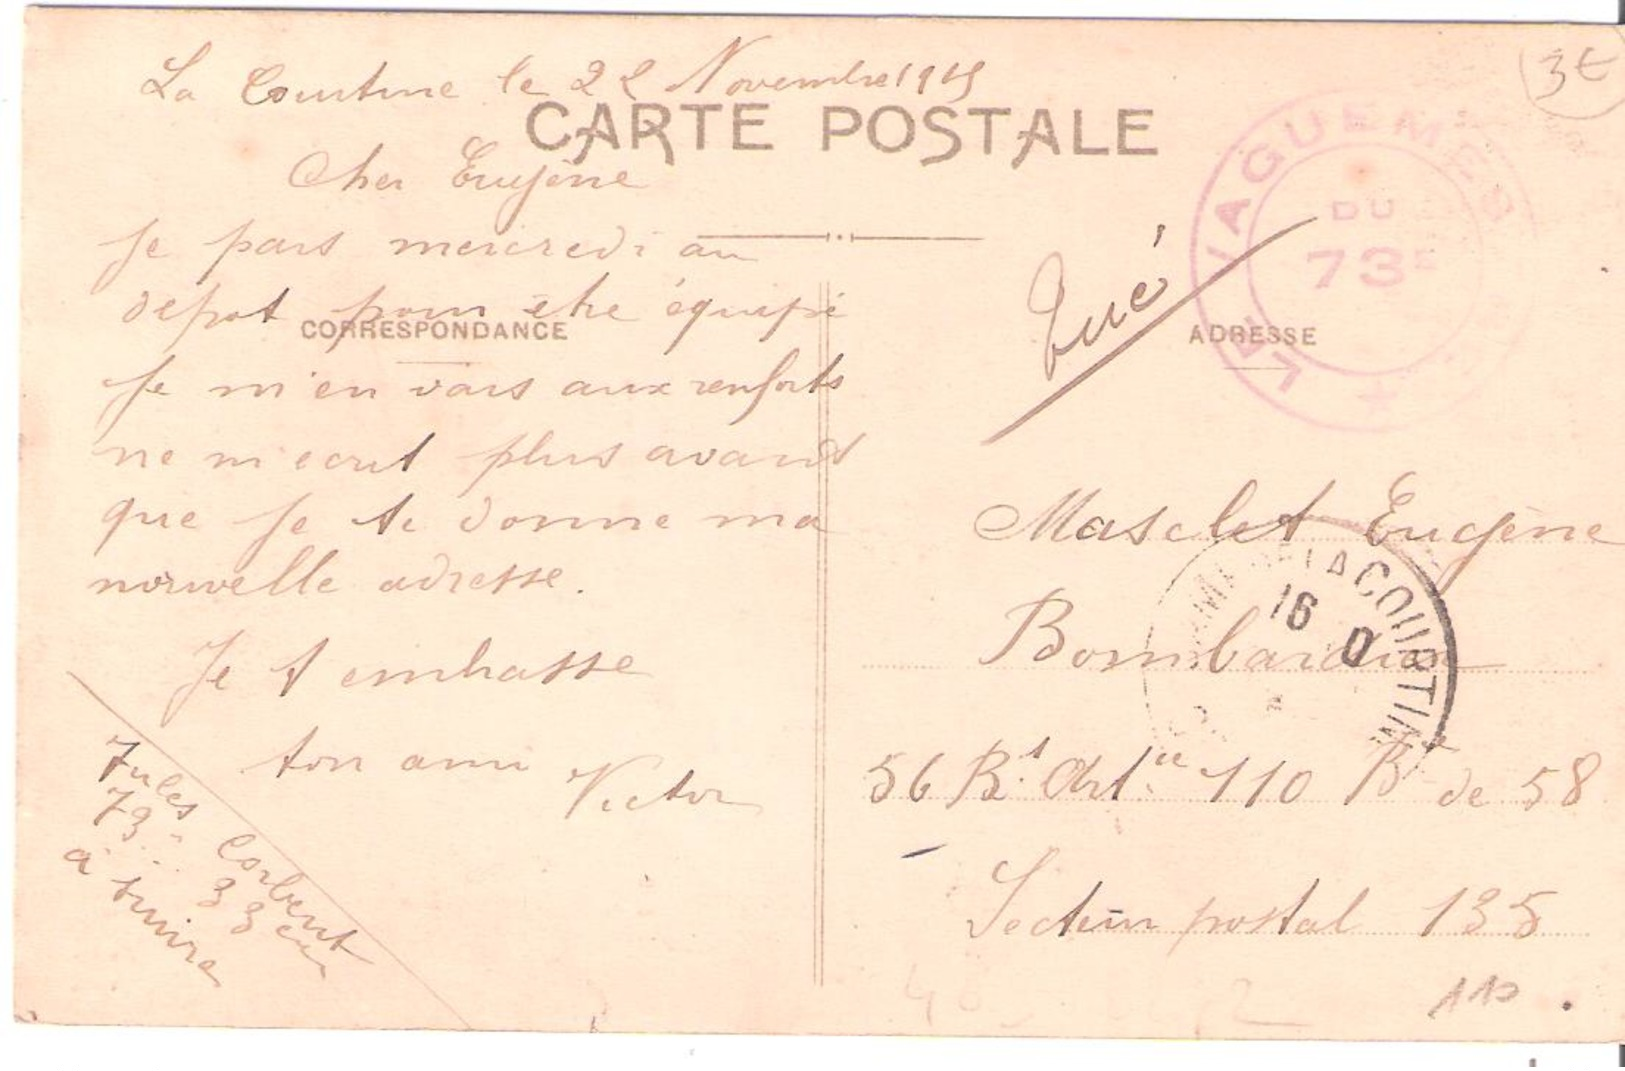 La Courtine le 22 Novembre 1915
CARTE POSTALE
3€
Cher Eugène
Je pars mercredi au
dépot pour etre équipé
CORRESPONDANCE
Je m'en vais aux renforts
ne m'ecrit plus avant
que je te donne ma
nouvelle adresse.
Je t embrasse
ton ami Victor
Jules Corbent
73e 33 cie
à suivre
LE VAGUEMES
DU
73E
Tué
ADRESSE
Masclet Eugène
Bombardier
LA COURTIN
16
D
56 Rt Artie 110 Bie de 58
Secteur postal 135
110